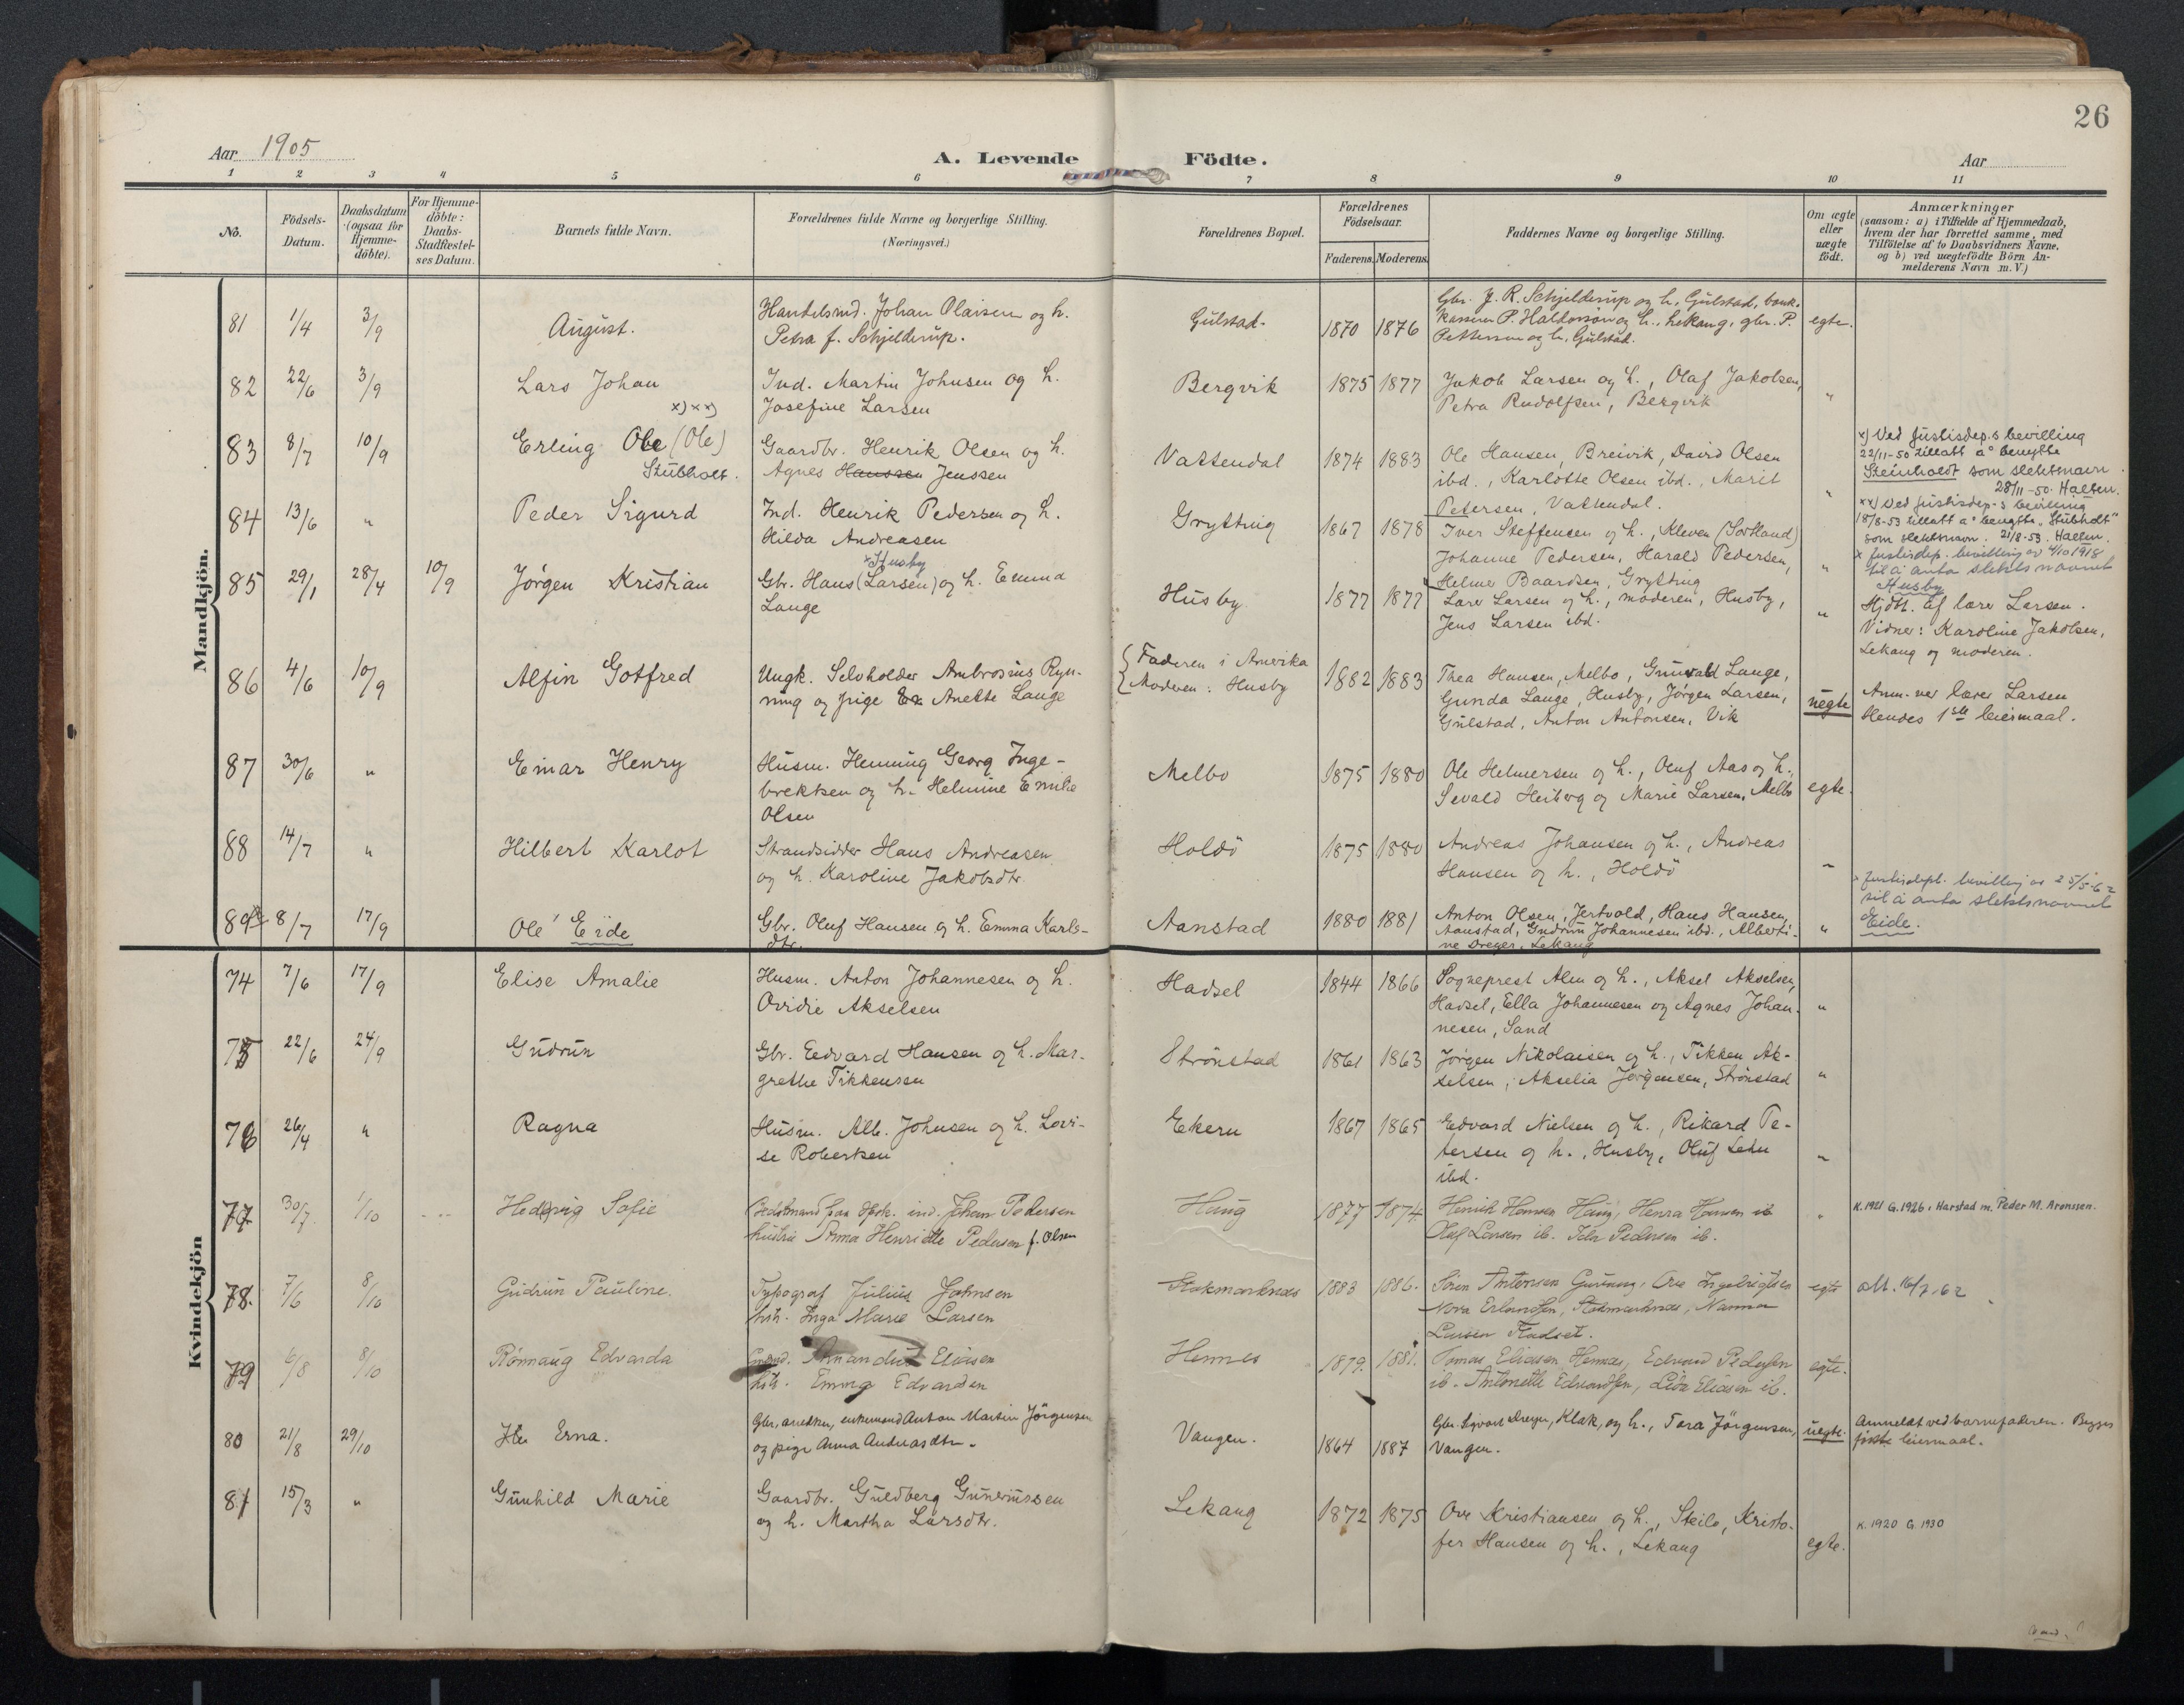 26
Aar 1905
A. Levende Födte.
Aar
1 2 3 4 5 6 7 8 9 10 11
No.
Födsels-Datum.
Daabsdatum (ogsaa for Hjemme-döbte).
For Hjemme-döbte: Daabs-Stadfæstel-ses Datum.
Barnets fulde Navn.
Forældrenes fulde Navne og borgerlige Stilling. (Næringsvei.)
Forældrenes Bopæl.
Forældrenes Födselsaar.
Faderens. Moderens.
Faddernes Navne og borgerlige Stilling.
Om ægte eller uægte födt.
Anmærkninger
(saasom: a) i Tilfælde af Hjemmedaab,
hvem der har forrettet samme, med
Tilföielse af to Daabsvidners Navne,
og b) ved uægtefödte Börn An-
melderens Navn m. V.)
Mandkjön.
81 1/4 3/9 August.
Handelsmd. Johan Olaisen og h.
Petra f. Schjelderup.
Gulstad. 1870 1876
Gbr. J. R. Schjelderup og h. Gulstad, bank-
kasserer P. Haldorsön og h., Lekang, gbr. P.
Pettersen og h. Gulstad.
egte.
82 22/6 3/9 Lars Johan
Ind. Martin Johnsen og h.
Josefine Larsen
Bergvik 1875 1877
Jakob Larsen og h., Olaf Jakobsen,
Petra Rudolfsen, Bergvik
"
83 8/7 10/9 Erling Ole (Ole) x) xx)
Stubholt.
Gaardbr. Henrik Olsen og h.
Agnes Hanssen Jenssen
Vattendal 1874 1883
Ole Hansen, Breivik, David Olsen
ibd., Karlotte Olsen ibd., Marit
Petersen, Vattendal.
"
x) Ved Justisdep.s bevilling
22/11-50 tillatt å benytte
Steinholdt som slektsnavn.
28/11-50. Halten.
xx) Ved Justisdep-s bevilling
18/8-53 tillatt å benytte "Stubholt"
som slektsnavn. 21/8-53. Halten.
84 13/6 " Peder Sigurd
Ind. Henrik Pedersen og h.
Hilda Andreasen
Grytting 1867 1878
Iver Steffensen og h., Kleven (Sortland)
Johanne Pedersen, Harald Pedersen,
Helmer Baardsen, Grytting
"
85 29/1 28/4 10/9 Jörgen Kristian
x Husby
Gbr. Hans (Larsen) og h. Emma
Lange
Husby 1877 1877
Lærer Larsen og h., moderen, Husby,
Jens Larsen ibd.
"
x Justisdep. bevilling av 4/10 1918
til å anta slektsnavnet
Husby
Hjdbt. af lærer Larsen.
Vidner: Karoline Jakobsen,
Lekang og moderen.
86 4/6 10/9 Alfin Gotfred
Ungk. Selvholder Ambrosius Ryn-
ning og pige Anette Lange
Faderen i Amerika
Moderen: Husby
1882 1883
Thea Hansen, Melbo, Grunvald Lange,
Gunda Lange, Husby, Jörgen Larsen,
Gulstad, Anton Antonsen, Vik
uegte
Anm. ver lærer Larsen
Hendes 1ste leiermaal.
87 30/6 " Einar Henry
Husm. Henning Georg Inge-
brektsen og h. Helmine Emilie
Olsen
Melbo 1875 1880
Ole Helmersen og h., Oluf Aas og h.,
Sevald Heiberg og Marie Larsen, Melbo
egte.
88 14/7 " Hilbert Karlot
Strandsidder Hans Andreasen
og h. Karoline Jakobsdtr.
Holdö 1875 1880
Andreas Johansen og h., Andreas
Hansen og h., Holdö
"
89 8/7 17/9 Ole Eide
Gbr. Oluf Hansen og h. Emma Karls-
dtr.
Aanstad 1880 1881
Anton Olsen, Jertvold, Hans Hansen,
Aanstad, Gudrun Johannesen ibd., Alberti-
ne Dreyer, Lekang
"
x Justisdept. bevilling av 25/5-62
til å anta slektsnavnet
Eide.
Kvindekjön
74 7/6 17/9 Elise Amalie
Husm. Anton Johannesen og h.
Ovidie Akselsen
Hadsel 1844 1866
Sogneprest Alm og h., Aksel Akselsen,
Hadsel, Ella Johannesen og Agnes Johan-
nesen, Sand
"
75 22/6 24/9 Gudrun
Gbr. Edvard Hansen og h. Mar-
grethe Tikkensen
Strönstad 1861 1863
Jörgen Nikolaisen og h., Tikken Ak-
selsen, Akselia Jörgensen, Strönstad
"
76 26/4 " Ragna
Husm. Alb. Johnsen og h. Lovi-
se Robertsen
Ekern 1867 1865
Edvard Nielsen og h., Rikard Pe-
tersen og h., Husby, Oluf
ibd.
"
77 30/7 1/10 Hedvig Sofie
ind. Johan Pedersen
hustru Anna Henriette Pedersen f. Olsen
Haug 1877 1874
Henrik Hansen Haug, Henra Hansen ib
Olaf Larsen ib. Ida Pedersen ib.
"
K. 1921 G. 1926 i Harstad m. Peder M. Aronssen.
78. 7/6 8/10 Gudrun Pauline.
Typograf Julius Johnsen
hstr. Inga Marie Larsen
Stokmarknes 1883 1886.
Sören Antonsen
Nora Erlandsen, Stokmarknes, Nanna
Larsen Hadsel.
egte
att. 16/7-62
79 6/8 8/10 Rönnaug Edvarda
Amandus Eliasen
hstr. Emma Edvardsen
Hennes 1879. 1881.
Tomas Eliasen Hennes, Edvard Pedersen
ib. Antonette Edvardsen, Lida Eliasen ib.
egte.
80 21/8 29/10 Erna.
Gbr., anetken, enkemand Anton Martin Jörgensen
og pige Anna Andreasdtr.
Vangen. 1864 1887
Gbr. Sigvart Dreyer, Klak, og h., Tora Jörgensen,
Vangen.
uegte.
Anmeldt ved barnefaderen. Begges
første leiermaal.
81 15/3 " Gunhild Marie
Gaardbr. Guldberg Guneriussen
og h. Martha Larsdtr.
Lekang 1872 1875
Ove Kristiansen og h., Steilo, Kristo-
fer Hansen og h., Lekang
egte.
K. 1920 G. 1930